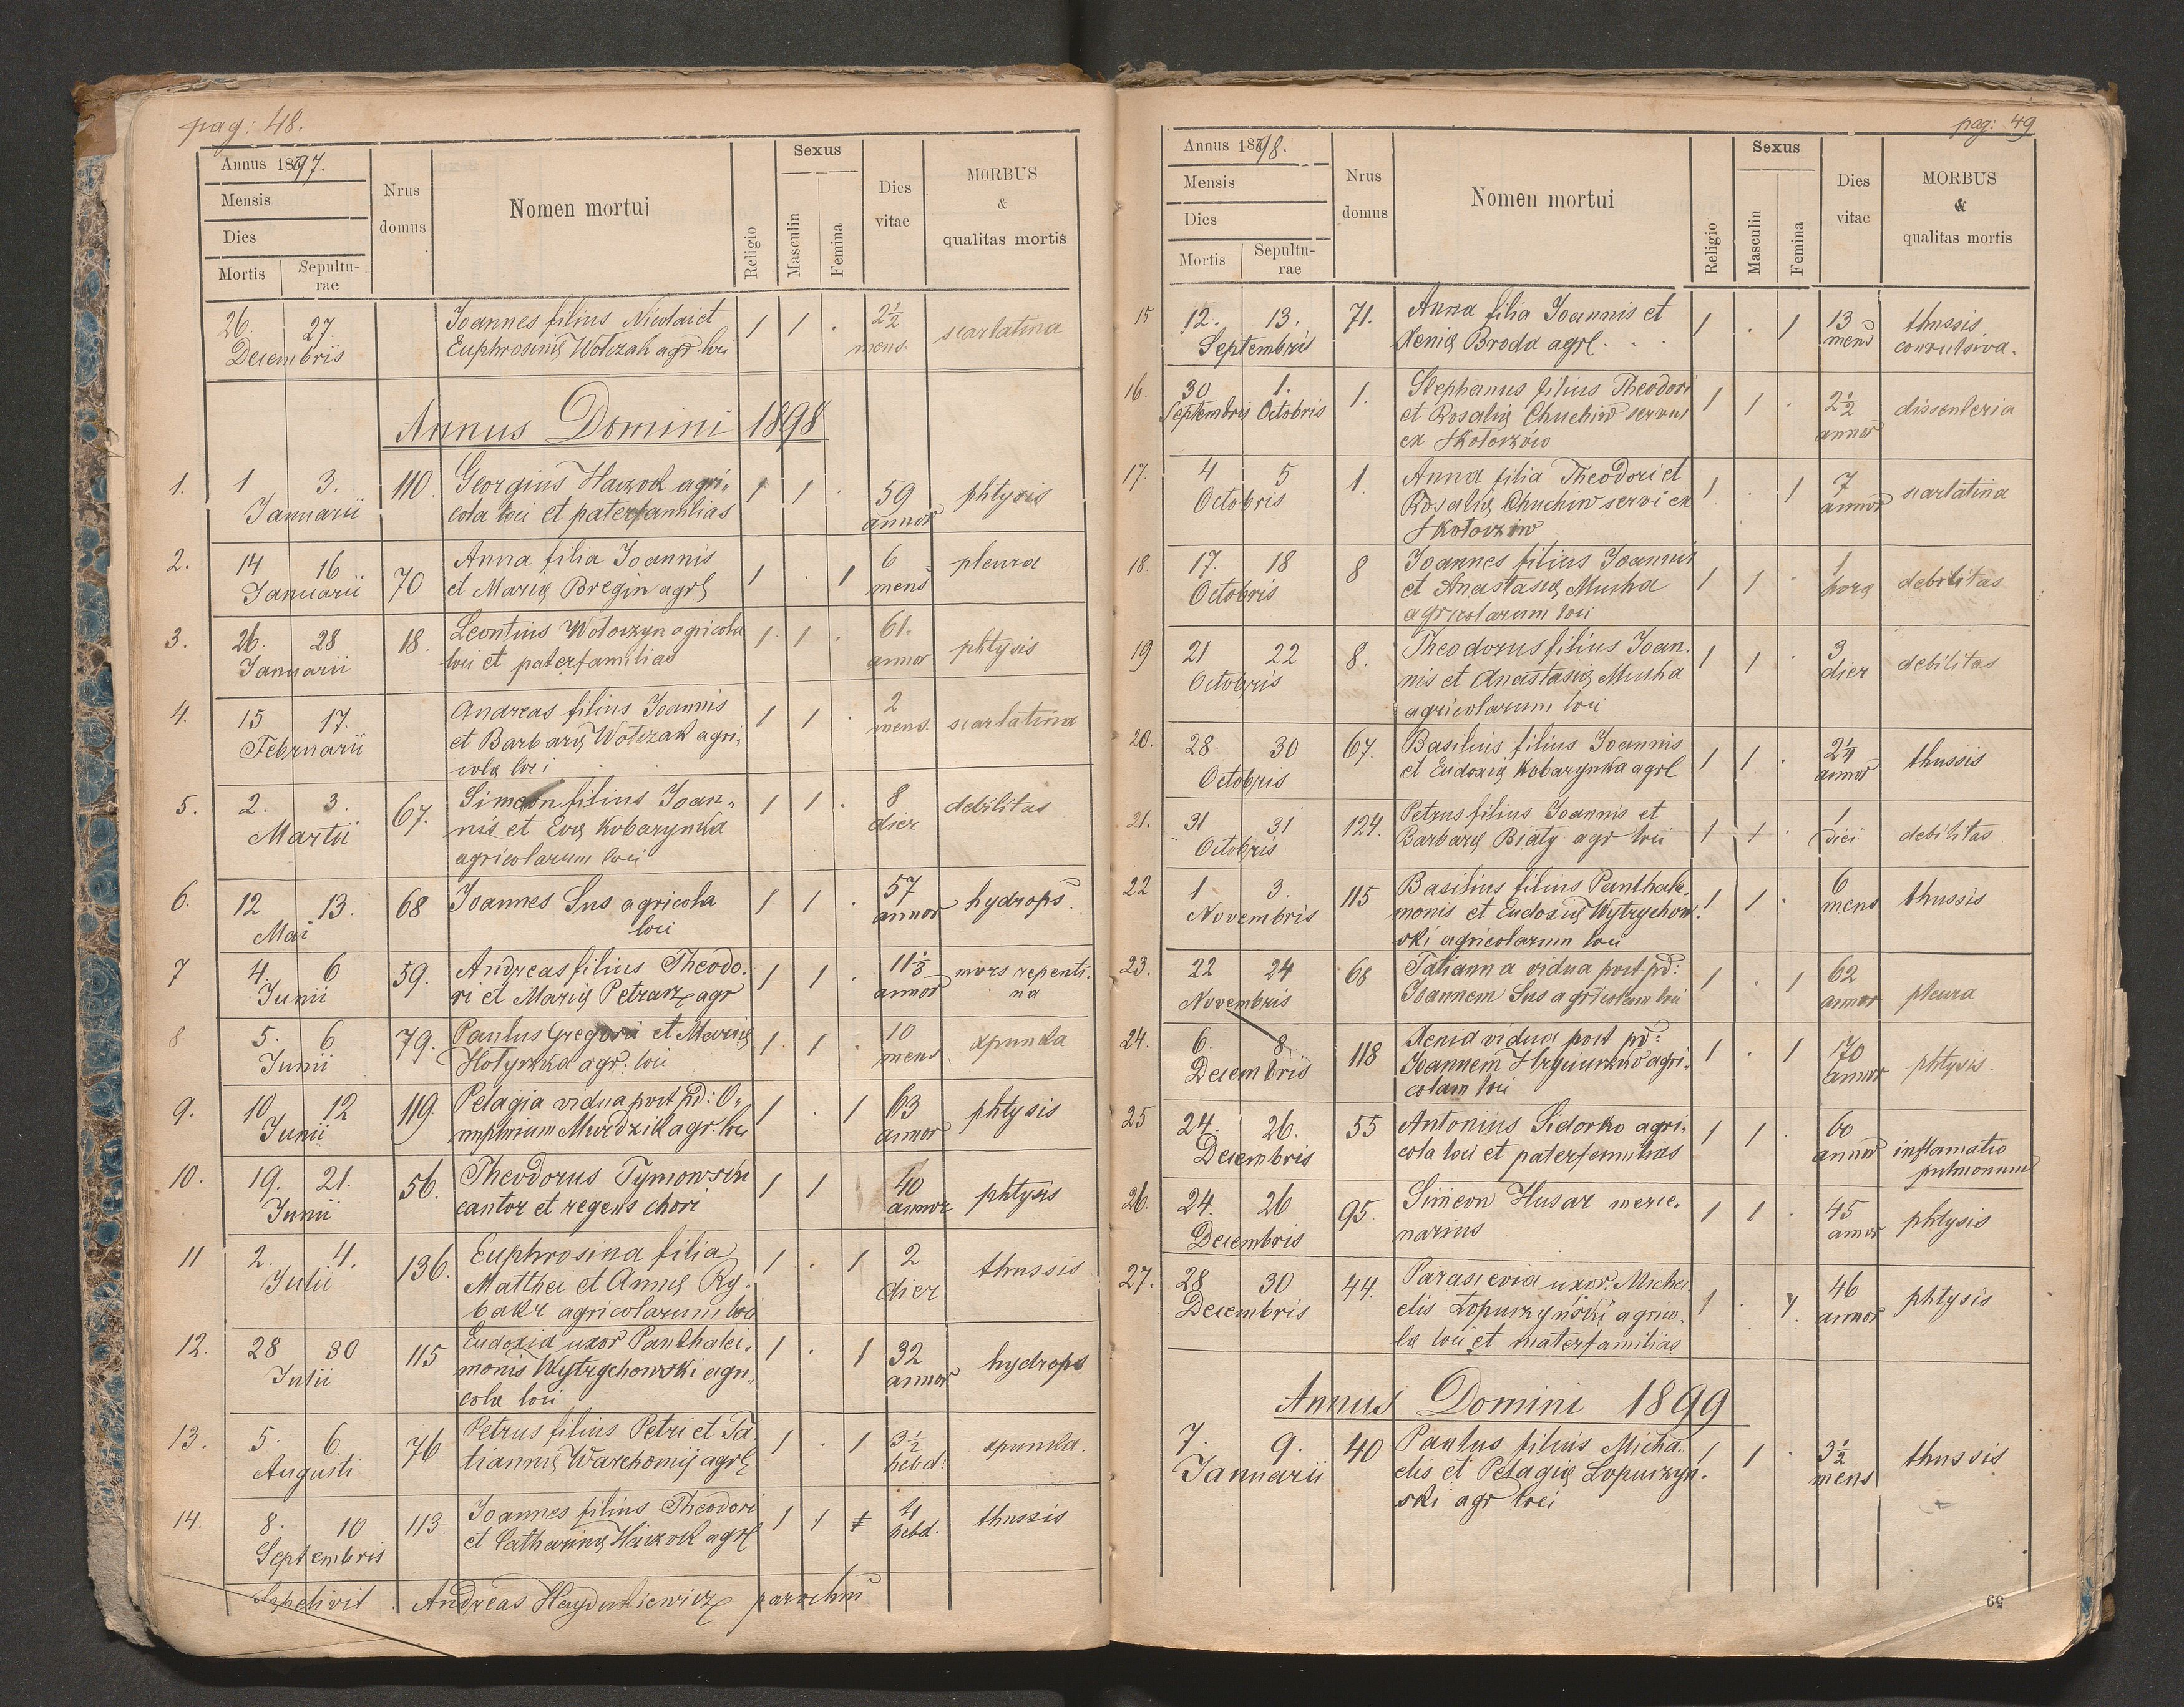 pag: 48.
Annus 1897.
Mensis
Dies
Mortis
Sepultu-
rae
Nrus
domus
Nomen mortui
Religio
Sexus
Masculin
Femina
Dies
vitae
MORBUS
&
qualitas mortis
26. 27. Joannes filius Nicolai et 1 1 . 2½ scarlatina
Decembris Euphrosinę Wołczak agr. loci mens.
Annus Domini 1898
1. 1 3. 110. Georgius Haczok agri- 1 1 . 59 phtysis
Januarii cola loci et paterfamilias annor
2. 14 16 70 Anna filia Joannis 1 . 1 6 pleura
Januarii et Marię Bregin agrę mens
3. 26. 28 18. Leontius Wołoszyn agricola 1. 1 . 61. phtysis
Januarii loci et paterfamilias annor
4. 15 17. Andreas filius Joannis 1 1 . 2 scarlatina
Februarii et Barbarę Wołczak agri- mens.
colę loci
5. 2. 3. 67. Simeon filius Joan- 1 1 . 8 debilitas
Martii nis et Evę Kobarynka dier
agricolarum loci
6. 12 13. 68 Joannes Sus agricola 1 1 . 57 hydrops.
Mai loci annor
7 4. 6 59. Andreas filius Theodo- 1 1 . 11⅓ mors repenti-
Junii ri et Marię Petrasz agr annor na
8. 5. 6 79. Paulus Gregorii et Marię 1. 1 . 10 spunka
Junii Hołynska agr. loci mens
9. 10 12 119. Pelagia vidua post pd: O- 1 . 1 63 phtysis
Junii nuphrium Murdzik agr. loci annor
10. 19. 21. 56. Theodorus Tymowski 1 1 40 phtysis
Junii cantor et regens chori annor
11 2. 4. 136. Euphrosina filia 1 . 1 2 thussis
Julii Matthei et Annę Ry- dier
bakr agricolarum loci
12. 28 30 115 Eudoxia uxor Panthalei- 1 . 1 32 hydrops
Julii monis Wytrychowski agri- annor
colę loci
13. 5. 6. 76. Petrus filius Petri et Ta- 1 . 1 3½ spunka.
Augusti tiannę Warchomij agrę hebd:
14. 8. 10 113. Joannes filius Theodori 1 1 4 thussis
Septembris et Catharinę Haczok agrę hebd.
Sepelivit Andreas Haydukiewicz parochus
pag: 49
Annus 1898.
Mensis
Dies
Mortis
Sepultu-
rae
Nrus
domus
Nomen mortui
Religio
Sexus
Masculin
Femina
Dies
vitae
MORBUS
&
qualitas mortis
15 12. 13. 71. Anna filia Joannis et 1 . 1 13 thussis
Septembris Xenię Broda agrl. mens convulsiva.
16. 30 1. 1. Stephanus filius Theodori 1 1 . 2½ dissenteria
Septembris Octobris et Rosalię Chuchiw servus annor
ex Skołoszów
17. 4 5 1. Anna filia Theodori et 1 . 1 7 scarlatina
Octobris Rosalię Chuchiw servi ex annor
Skołoszów
18. 17. 18 8 Joannes filius Joannis 1 1 . 1 debilitas
Octobris et Anastasię Mucha hora
agricolarum loci
19 21 22 8. Theodorus filius Joan- 1 1 . 3 debilitas
Octobris nis et Anastasię Mucha dier
agricolarum loci
20. 28. 30 67. Basilius filius Joannis 1 1 . 2¼ thussis
Octobris et Eudoxię Kobarynka agrl annor
21. 31 31 124. Petrus filius Joannis et 1 1 . 1 debilitas.
Octobris Barbarę Biały agr loci diei
22 1 3. 115 Basilius filius Panthale- 1 1 . 6 thussis
Novembris monis et Eudoxię Wytrychow- mens
ski agricolarum loci
23. 22 24 68 Tatianna vidua post pd: 1 . 1 62 pleura
Novembris Joannem Sus agricolam loci annor
24. 6. 8. 118 Xenia vidua post pd: 1 . 1 70 phtysis.
Decembris Joannem agri- annor
colam loci
25 24. 26. 55 Antonius Sidorko agri- 1 1 . 60 inflamatio
Decembris cola loci et paterfamilias annor pulmonum
26. 24. 26 95. Simeon Husar merce- 1 1 . 45 phtysis
Decembris narius annor
27. 28 30 44. Parascevia uxor Micha- 1 . 1. 46 phtysis
Decembris elis Łopuszyński agrico- annor
lę loci et materfamilias
Annus Domini 1899
7. 9. 40 Paulus filius Micha- 1 1 . 3½ thussis
Januarii elis et Pelagię Łopuszyn- mens
ski agr loci
69